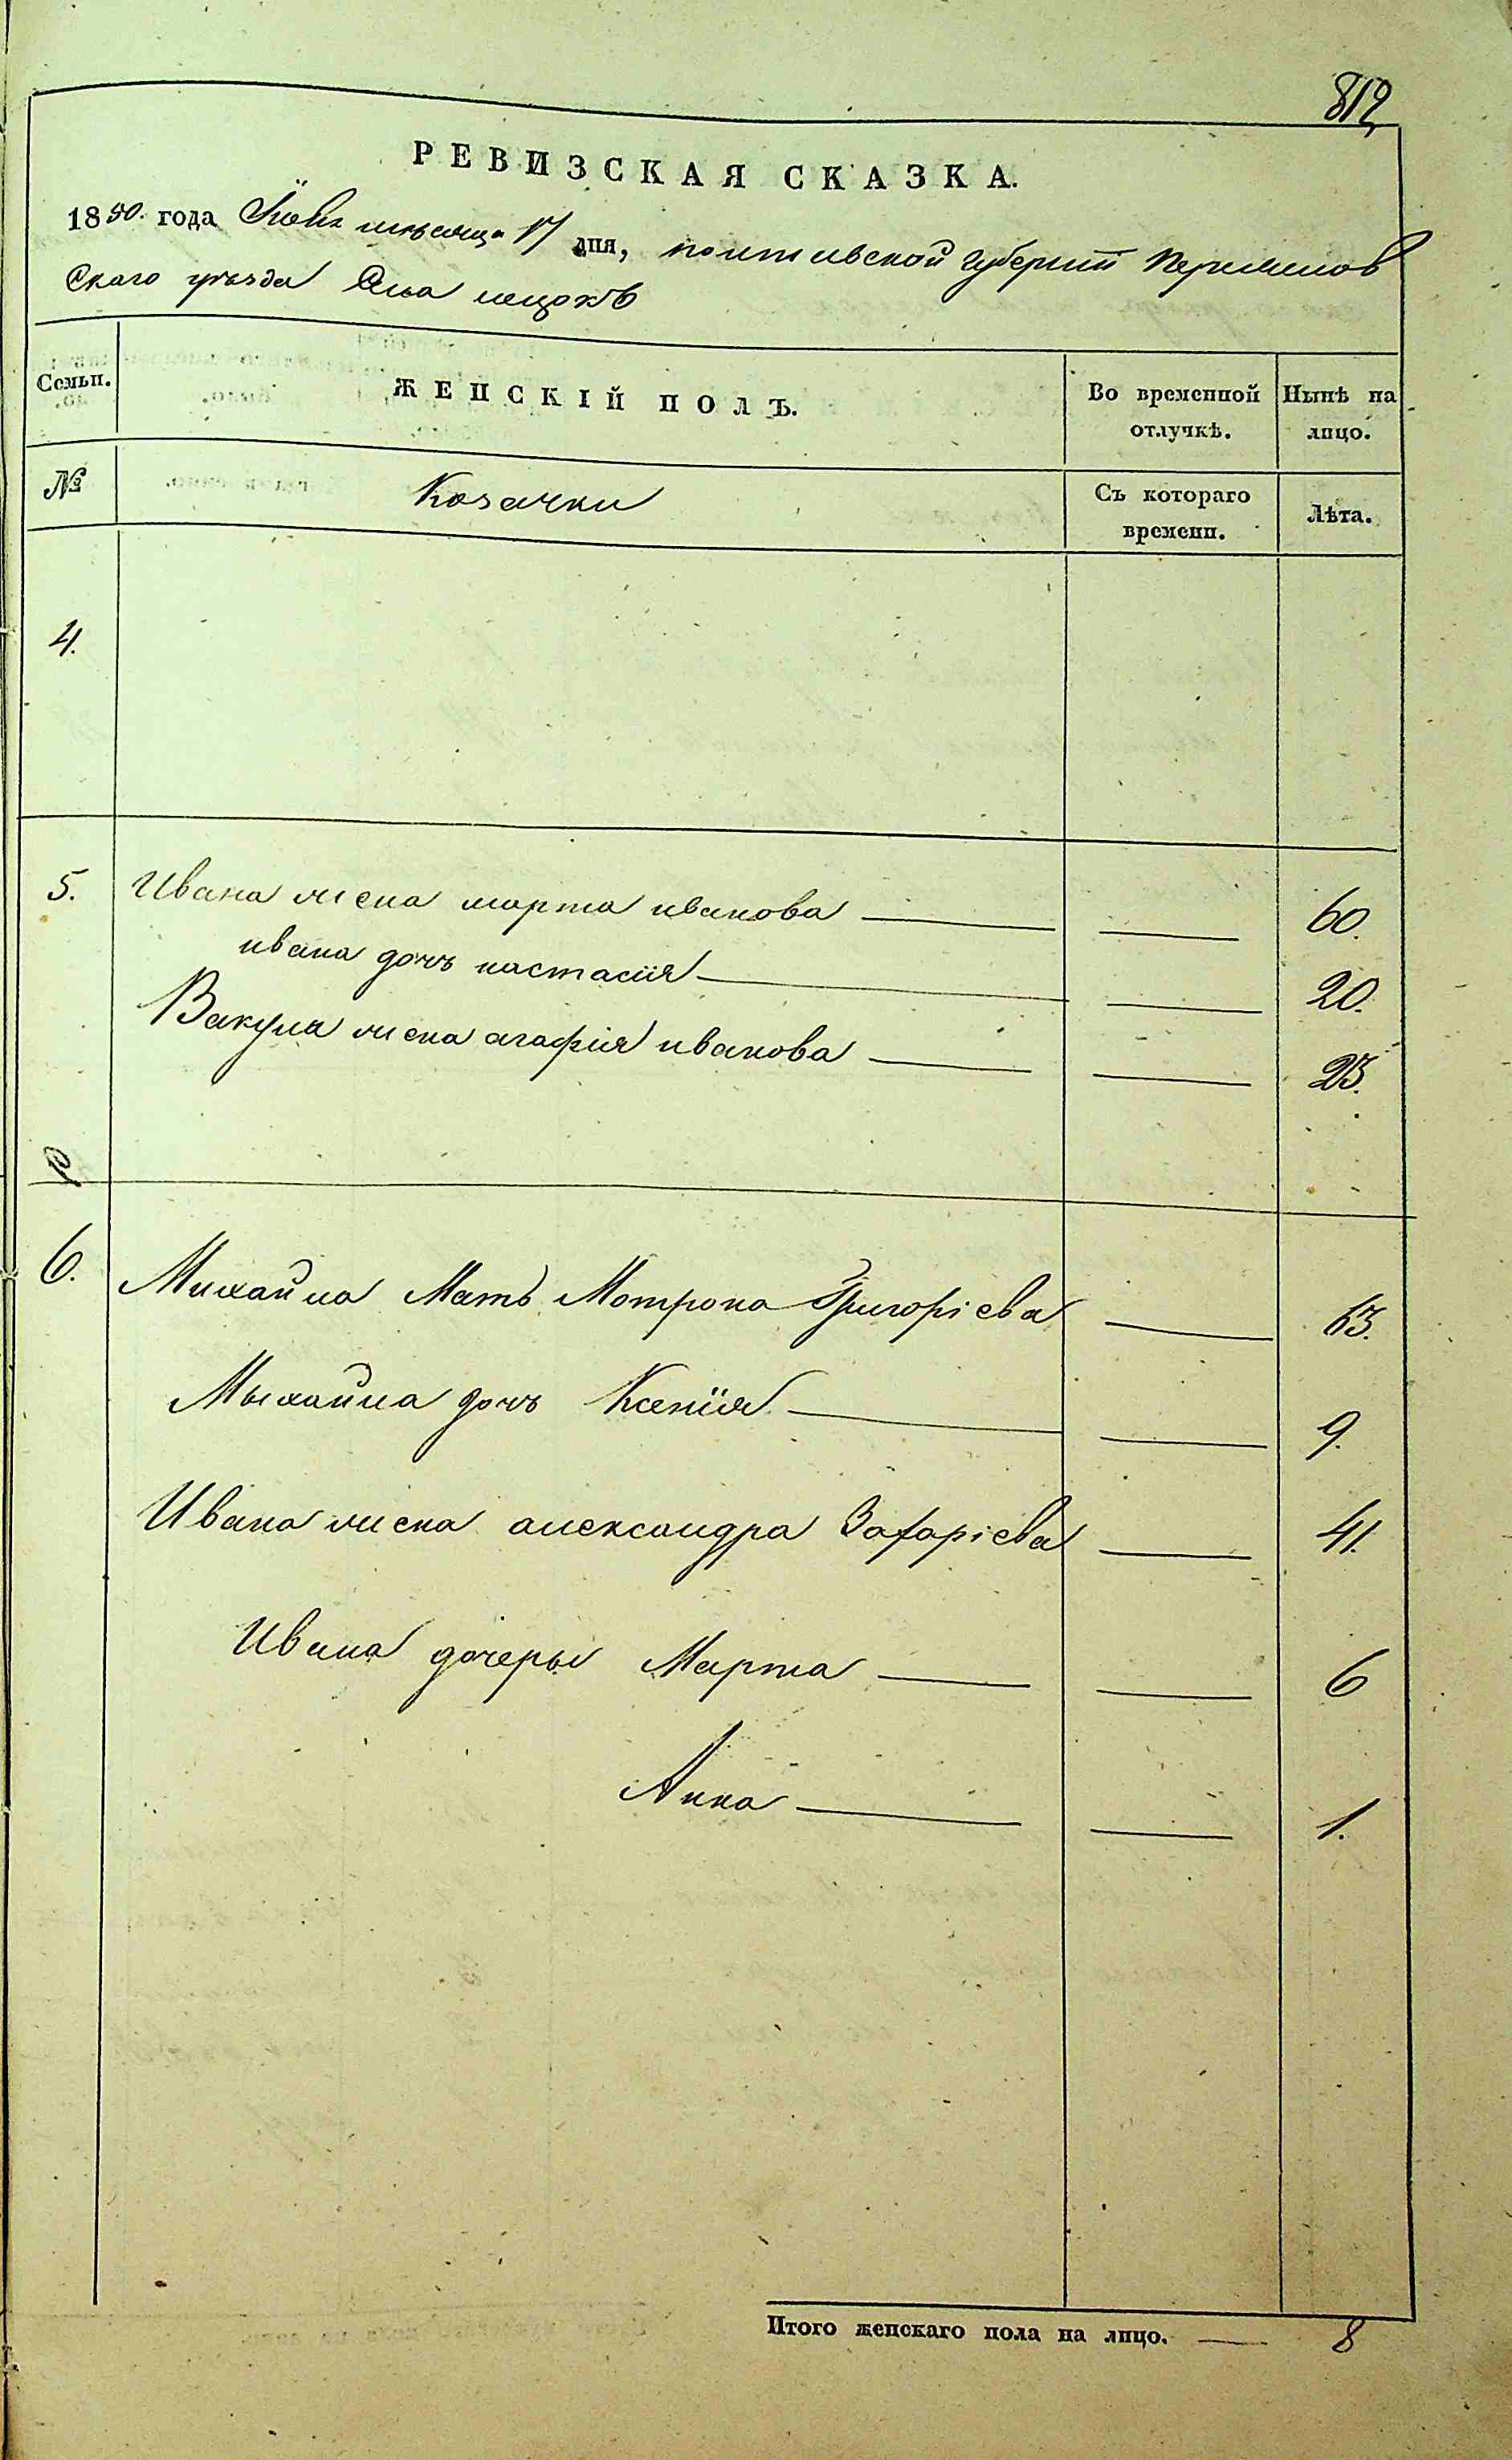 812
РЕВИЗСКАЯ СКАЗКА.
1850. года Іюня мѣсяца 17 дня, полтавской губерніи
Скаго уѣзда Села
Семьи. ЖЕНСКІЙ ПОЛЪ. Во временной отлучкѣ. Нынѣ на лицо.
№ Козачки Съ котораго времени. Лѣта.
4.
5. Ивана жена марта иванова 60.
ивана дочъ настасия 20.
Вакула жена агафія иванова 23.
6. Михайла Мать Мотрона Григоріева 63.
Мыхайла дочъ Ксенія 9.
Ивана жена александра Захаріева 41.
Ивана дочеры Марта 6
Анна 1.
Итого женскаго пола на лицо. 8